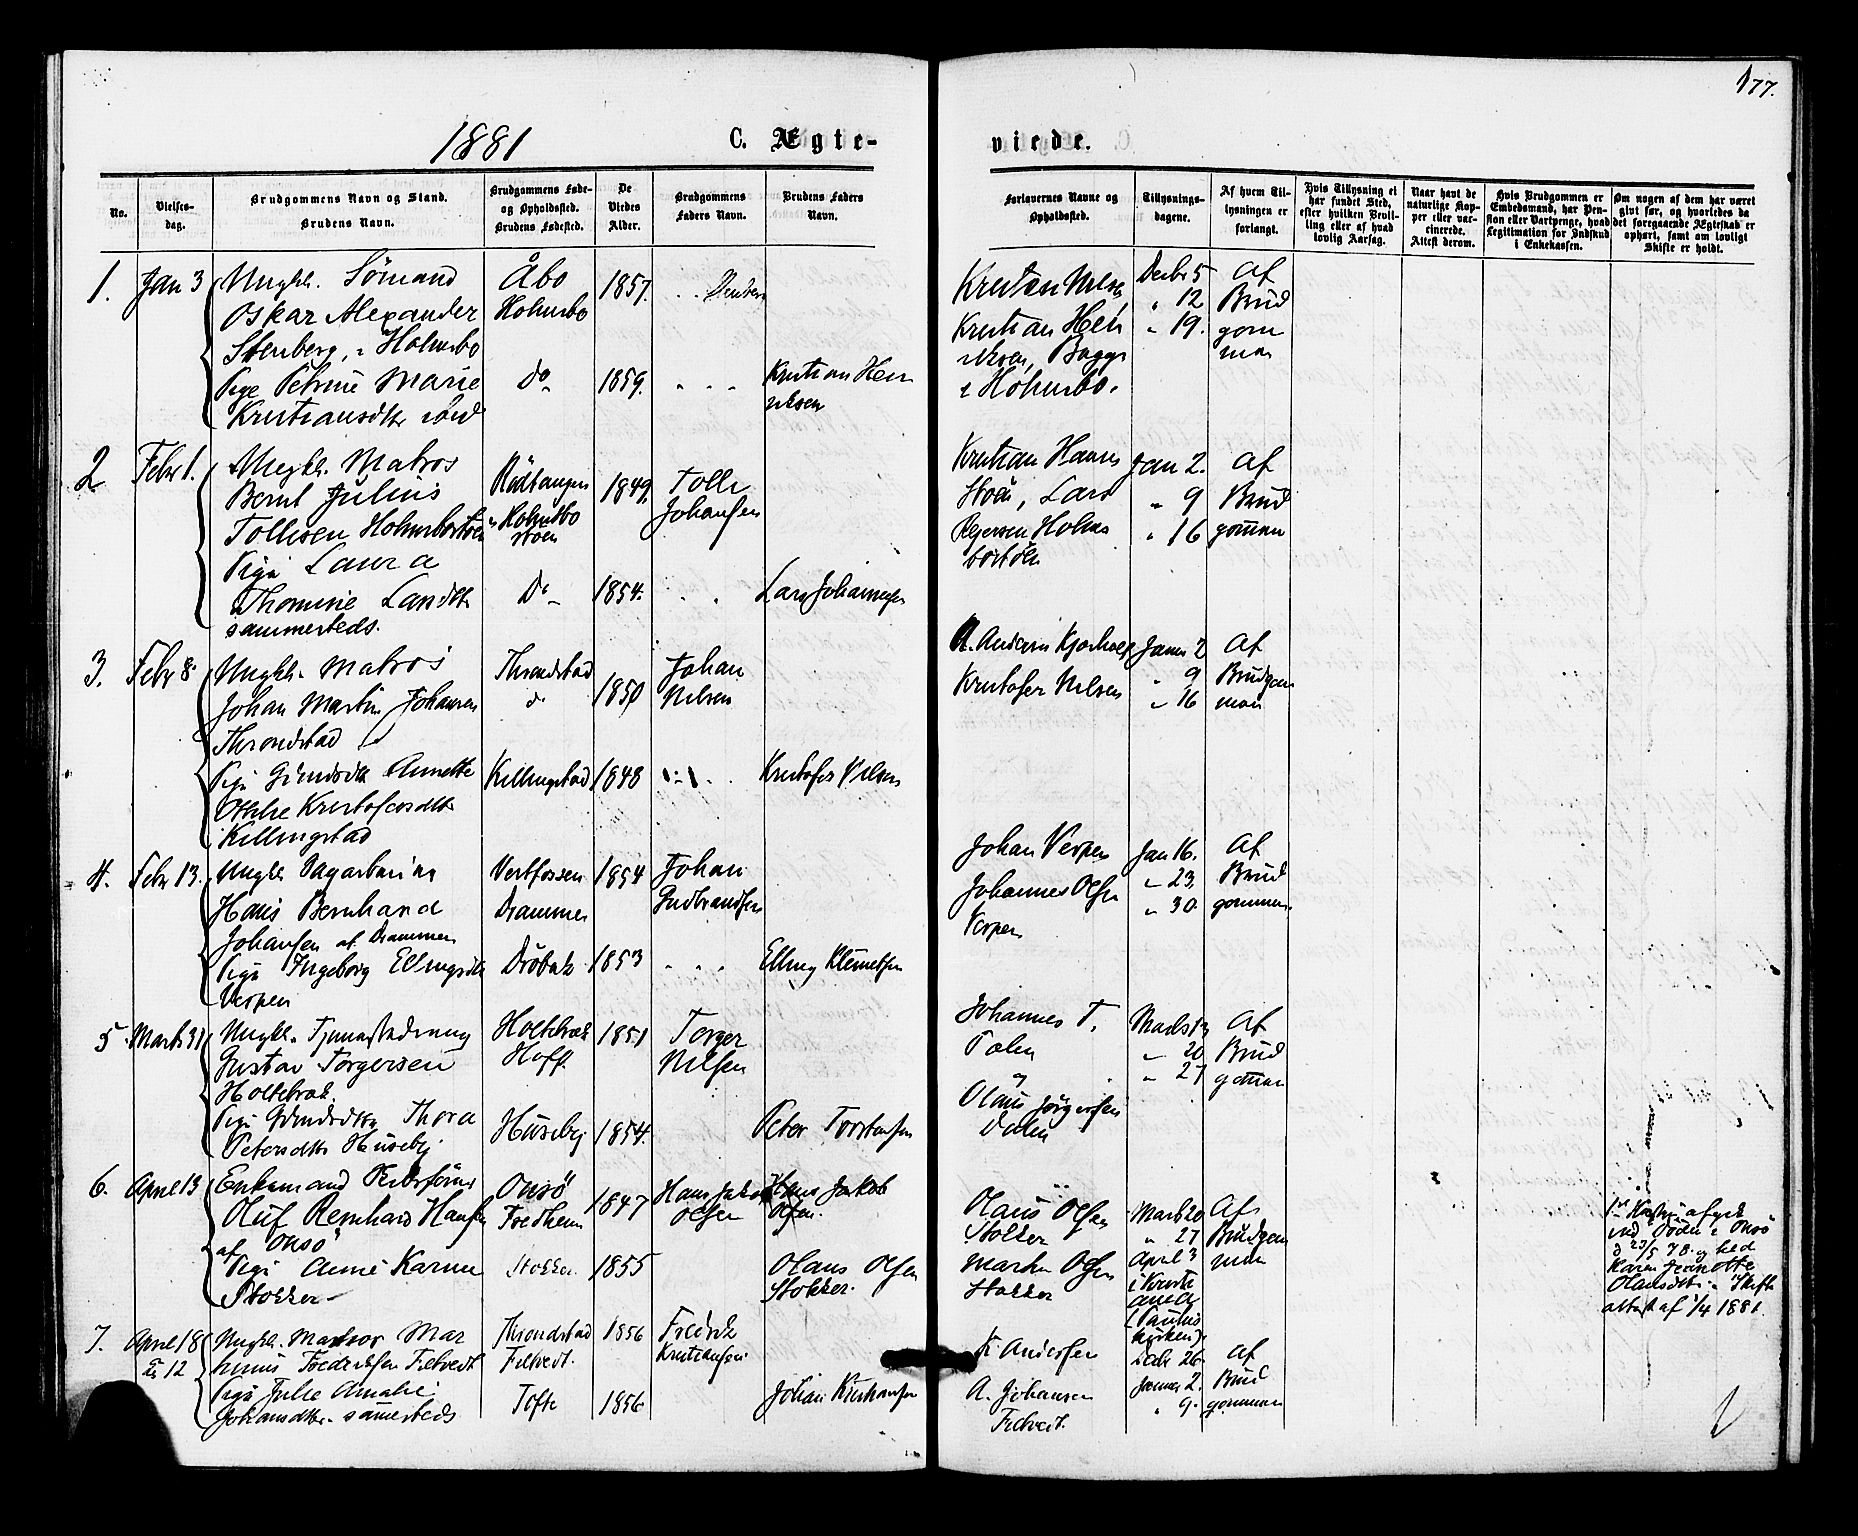 177.
1881
C. Ægte-
viede.
No.
Vielses-
dag.
Brudgommens Navn og Stand.
Brudens Navn.
Brudgommens Føde-
og Opholdssted.
Brudens Fødested.
De
Viedes
Alder.
Brudgommens
Faders Navn.
Brudens Faders
Navn.
Forlovernes Navne og
Opholdssted.
Tillysnings-
dagene.
Af hvem Til-
lysningen er
forlangt.
Hvis Tillysning ei
har fundet Sted,
efter hvilken Bevil-
ling eller af hvad
lovlig Aarsag.
Naar havt de
naturlige Kop-
per eller vac-
cinerede.
Attest derom.
Hvis Brudgommen er
Embedsmand, har Pen-
sion eller Vartpenge, hvad
Legitimation for Indskud
i Enkekassen.
Om nogen af dem har været
gift før, og hvorledes da
det foregaaende Ægteskab er
ophørt, samt om lovligt
Skifte er holdt.
1. Jan 3
Ungkl. Sømand
Oskar Alexander
Stenberg, i Holmsbo
Pige Petrine Marie
Kristiansdtr
Åbo
Holmsbo
Do
1857.
1859.
Kristian Hen
riksen
Kristen Nilsen
Kristian Hen
riksen,
i Holmsbo.
Decbr 5
" 12
" 19.
Af
Brud
gom
man
2 Febr 1.
Ungkl. Matros
Bernt Julius
Tollesen Holmsbostøen
Pige Laura
Thomine Larsdtr
sammesteds.
Rødtangen
Holmsbo
støen
Do
1849.
1854.
Tolle
Johansen
Lars Johannesen
Kristian Hansen
Støen, Lars
Holms
bostøen
Jan 2.
" 9
" 16
Af
Brud
gomman
3. Febr 8.
Ungkl. Matros
Johan Martin Johansen
Throndstad
Pige Annette
Kristofersdtr
Killingstad
Throndstad
do
Killingstad
1850
1848
Johan
Nilsen
Kristofer Nilsen
A. Andersen
Kristofer Nilsen
Januar 2
" 9
" 16
Af
Brudgom
man
4. Febr 13.
Ungkl. Dagarbeider
Hans Bernhard
Johansen af Drammen
Pige Ingeborg Ellingsdtr
Verpen
Vestfossen
Drammen
Drøbak
1854
1853
Johan
Gudbrandsen
Elling Klemetsen
Johan Verpen
Johannes Olsen
Verpen
Jan 16.
" 23.
" 30.
Af
Brud
gomman
5 Marts 31
Ungkl.
Gustav Torgersen
Holtebræk
Pige Gaardmdtr Thora
Petersdtr Huseby
Holtebræk
Hoff.
Huseby
1851
1854.
Torger
Nilsen
Peter Torstensen
Johannes T.
Tolen
og
Olaus Jørgensen
Dalen
Marts 13
" 20
" 27
Af
Brud
gomman
6. April 13
Enkemand
Oluf Bernhard Hansen
af Onsø
Pige Anne Karine
Stokker
Onsø
Tredheim
Stokker.
1847
1855
Hans Jakob
Olsen
Hans Jakob
Olsen.
Olaus Olsen
Stokker.
Olaus Olsen
Stokker
Martin Olsen
Stokker
Marts 20
" 27
April 3
i Kristi
ania
(Paulus
kirken).
Af
Brudgom
man
ved Døden i Onsø
d 23/5 78. og hed
Karen Jeanette
Olausdtr. Skifte
attest af 1/4 1881.
7. April 18
Kl 12
Ungkl. Matros Mar
tinius Fredriksen Filtvedt
Pige Julie Amalie
Johansdtr. sammesteds
Throndstad
Filtvedt.
Tofte
1856
1856
Fredrik
Kristiansen
Johan Kristiansen
K. Andersen
A. Johansen
Filtvedt.
Decbr 26.
Januar 2.
" 9.
Af
Brud
gomman